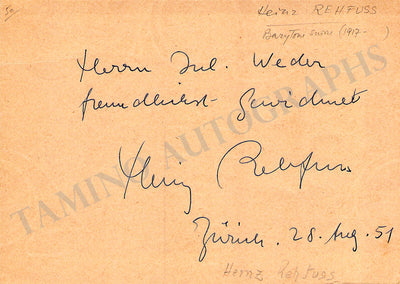 Heinz REHFUSS
Baryton suisse (1917-    )
Herrn Jul. Weder
freundlichst gewidmet
Heinz Rehfuss
Zürich. 28. Aug. 51
Heinz Rehfuss
TAMINO AUTOGRAPHS